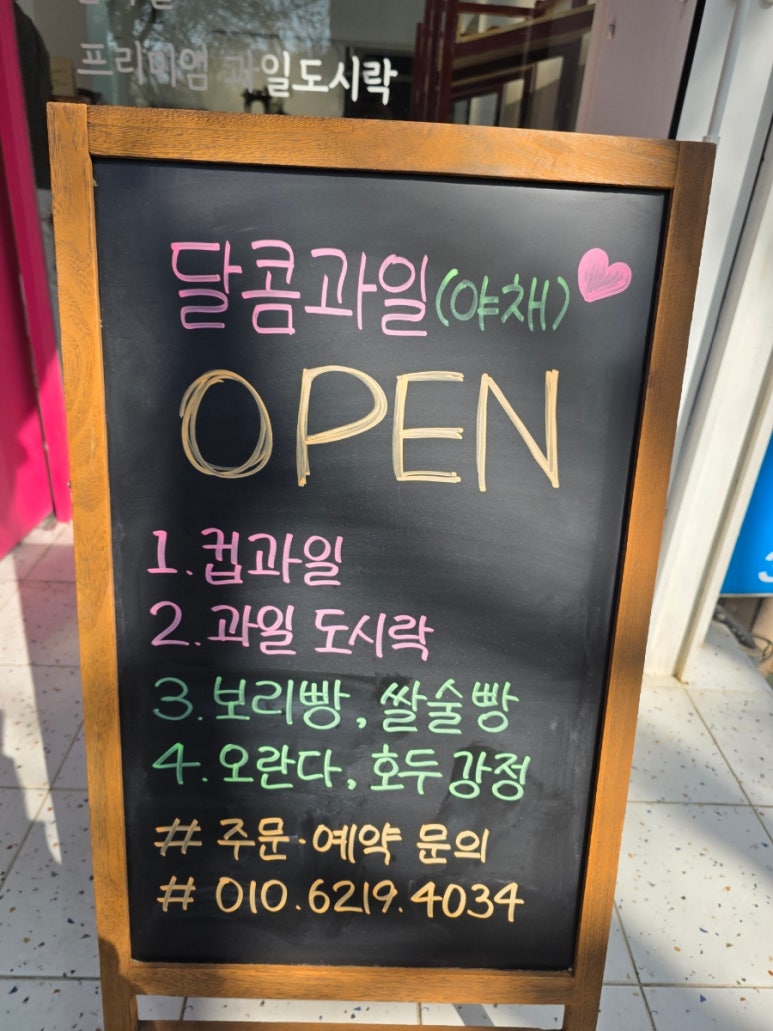 프리미엄 과일도시락
달콤과일(야채)
OPEN
1. 컵과일
2. 과일 도시락
3. 보리빵, 쌀술빵
4. 오란다, 호두강정
# 주문·예약 문의
# 010.6219.4034